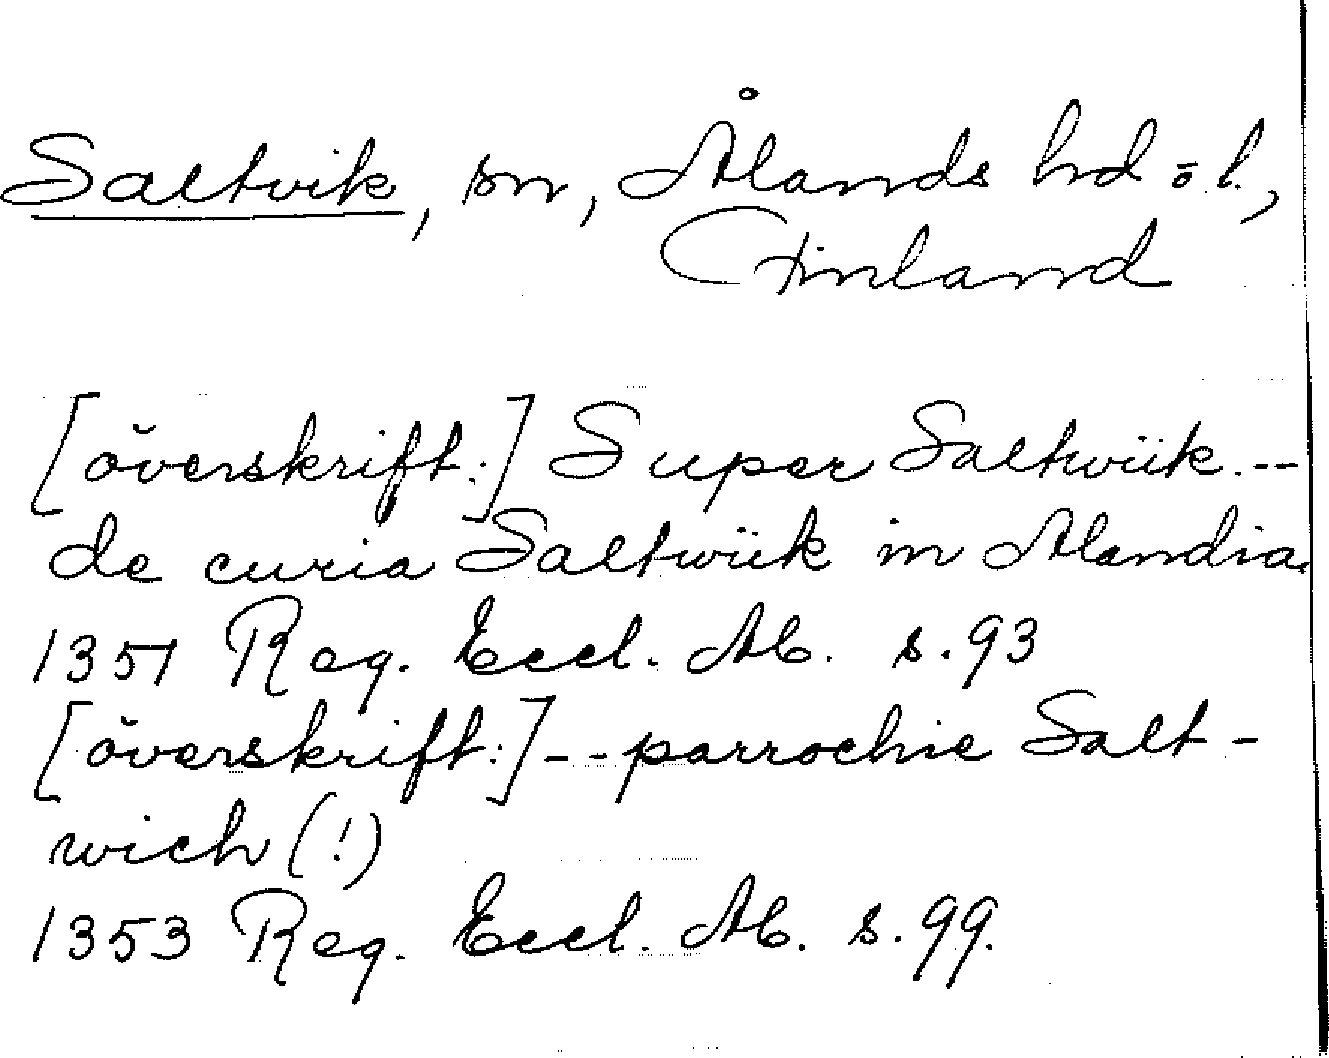 Saltvik, sn, Ålands hd o. l.,
Finland
[överskrift:] Super Saltwiik. --
de curia Saltwiik in Alandia.
1351 Reg. Eccl. Ab. s. 93
[överskrift:] -- parrochie Salt-
wich (!)
1353 Reg. Eccl. Ab. s. 99.